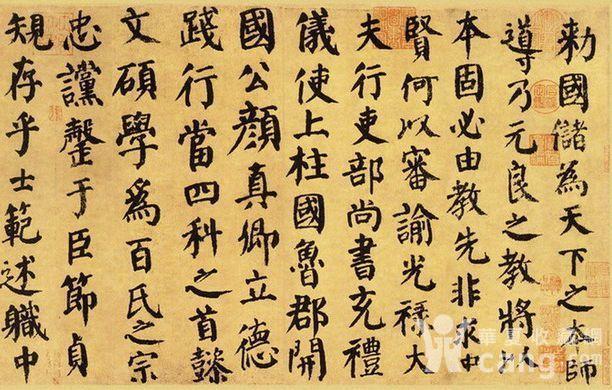 勑國儲為天下之本師
導乃元良之教將以
本固必由教先非求中
賢何以審諭光祿大
夫行吏部尚書充禮
儀使上柱國魯郡開
國公顏真卿立德
踐行當四科之首懿
文碩學為百氏之宗
忠讜罄于臣節貞
規存乎士範述職中
華夏收藏網
cang.com